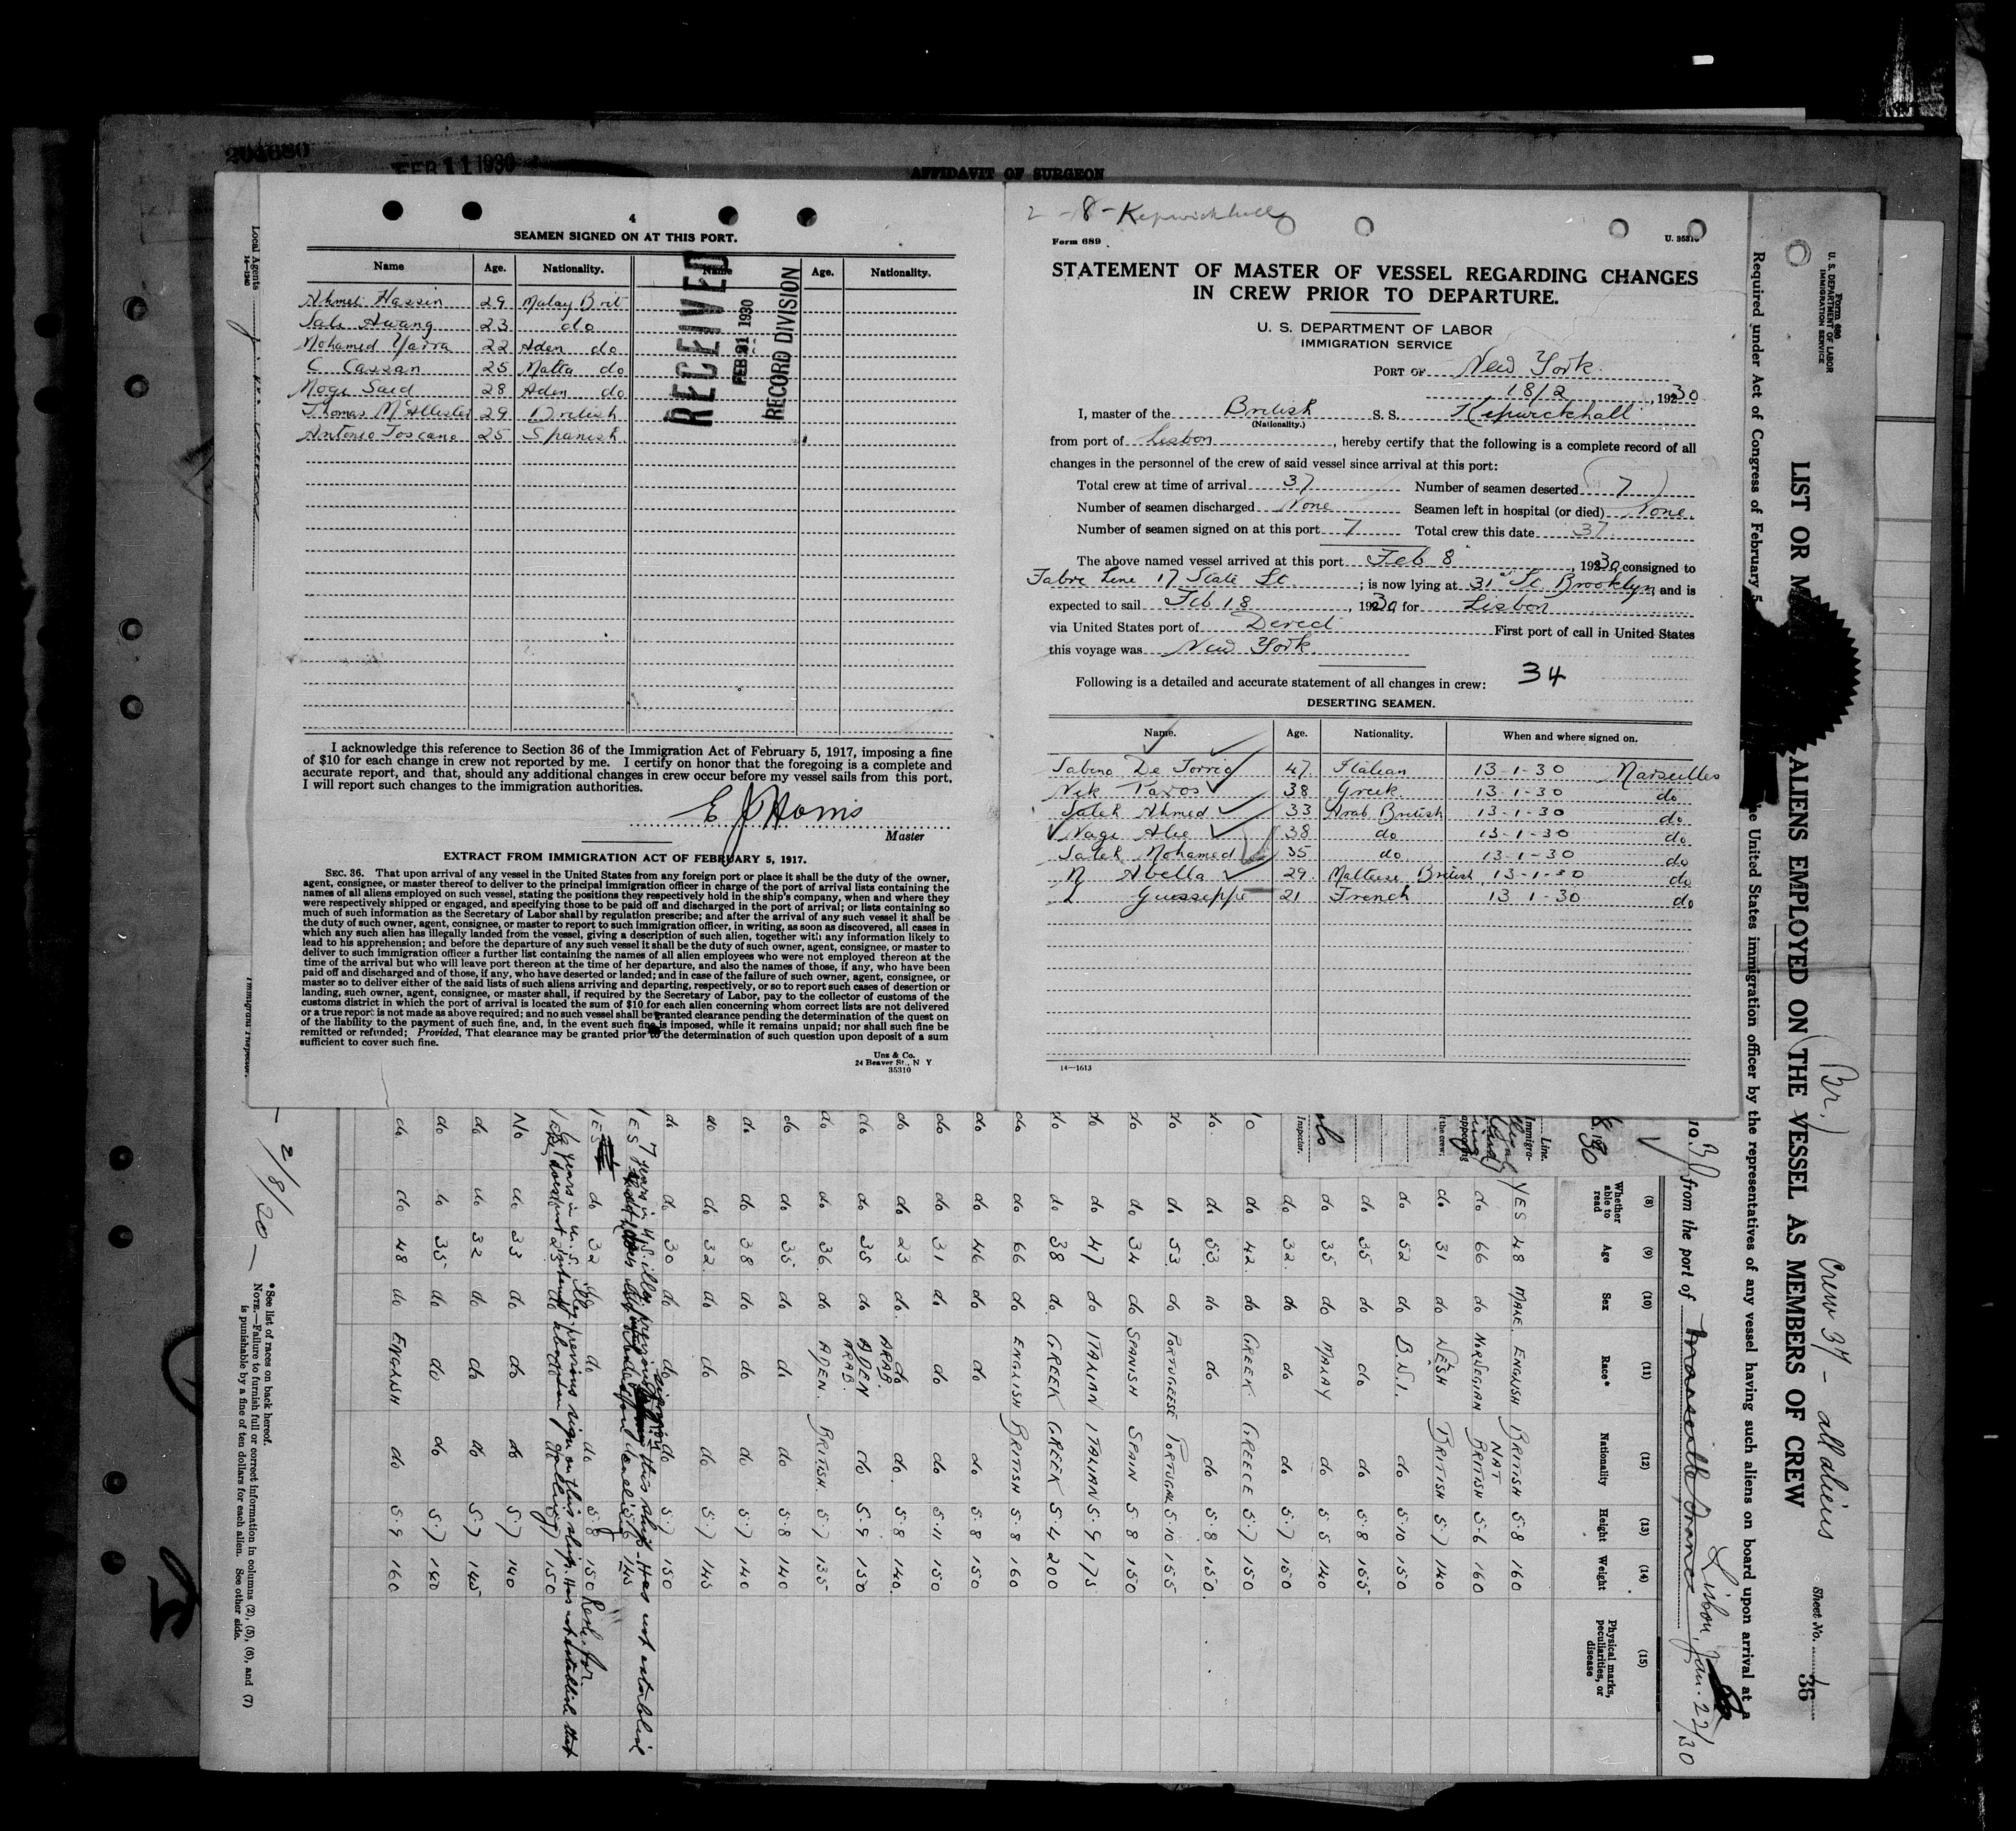 204680
FEB 11 1930
AFFIDAVIT OF SURGEON
4
SEAMEN SIGNED ON AT THIS PORT.
Name Age. Nationality. Name Age. Nationality.
Ahmet Hassin 29 Malay Brit
Sale Awang 23 do
Mohamed Yarra 22 Aden do
C Cassan 25 Malta do
Noge Said 28 Aden do
Thomas McAllister 29 British
Antonio Toscano 25 Spanish
RECEIVED
FEB 21 1930
RECORD DIVISION
I acknowledge this reference to Section 36 of the Immigration Act of February 5, 1917, imposing a fine
of $10 for each change in crew not reported by me. I certify on honor that the foregoing is a complete and
accurate report, and that, should any additional changes in crew occur before my vessel sails from this port,
I will report such changes to the immigration authorities.
E J Harris
Master
EXTRACT FROM IMMIGRATION ACT OF FEBRUARY 5, 1917.
SEC. 36. That upon arrival of any vessel in the United States from any foreign port or place it shall be the duty of the owner,
agent, consignee, or master thereof to deliver to the principal immigration officer in charge of the port of arrival lists containing the
names of all aliens employed on such vessel, stating the positions they respectively hold in the ship's company, when and where they
were respectively shipped or engaged, and specifying those to be paid off and discharged in the port of arrival; or lists containing so
much of such information as the Secretary of Labor shall by regulation prescribe; and after the arrival of any such vessel it shall be
the duty of such owner, agent, consignee, or master to report to such immigration officer, in writing, as soon as discovered, all cases in
which any such alien has illegally landed from the vessel, giving a description of such alien, together with any information likely to
lead to his apprehension; and before the departure of any such vessel it shall be the duty of such owner, agent, consignee, or master to
deliver to such immigration officer a further list containing the names of all alien employees who were not employed thereon at the
time of the arrival but who will leave port thereon at the time of her departure, and also the names of those, if any, who have been
paid off and discharged and of those, if any, who have deserted or landed; and in case of the failure of such owner, agent, consignee, or
master so to deliver either of the said lists of such aliens arriving and departing, respectively, or so to report such cases of desertion or
landing, such owner, agent, consignee, or master shall, if required by the Secretary of Labor, pay to the collector of customs of the
customs district in which the port of arrival is located the sum of $10 for each alien concerning whom correct lists are not delivered
or a true report is not made as above required; and no such vessel shall be granted clearance pending the determination of the quest on
of the liability to the payment of such fine, and, in the event such fine is imposed, while it remains unpaid; nor shall such fine be
remitted or refunded; Provided, That clearance may be granted prior to the determination of such question upon deposit of a sum
sufficient to cover such fine.
Unz & Co.
24 Beaver St., N Y
35310
2-18-Kepwickhall
Form 689
U. 35310
STATEMENT OF MASTER OF VESSEL REGARDING CHANGES
IN CREW PRIOR TO DEPARTURE.
U. S. DEPARTMENT OF LABOR
IMMIGRATION SERVICE
PORT OF New York.
18/2, 1930
I, master of the British S. S. Kepwickhall
(Nationality.)
from port of Lisbon, hereby certify that the following is a complete record of all
changes in the personnel of the crew of said vessel since arrival at this port:
Total crew at time of arrival 37 Number of seamen deserted 7
Number of seamen discharged None Seamen left in hospital (or died) None.
Number of seamen signed on at this port 7 Total crew this date 37.
The above named vessel arrived at this port Feb 8, 1930, consigned to
Fabre Line 17 State St.; is now lying at 31st St Brooklyn, and is
expected to sail Feb 18, 1930 for Lisbon
via United States port of Direct First port of call in United States
this voyage was New York.
Following is a detailed and accurate statement of all changes in crew: 34
DESERTING SEAMEN.
Name. Age. Nationality. When and where signed on.
Sabino De Torrio 47 Italian 13-1-30 Marseilles
Nik Taxos 38 Greek 13-1-30 do
Saleh Ahmed 33 Arab British 13-1-30 do
Nage Alie 38 do 13-1-30 do
Saleh Mohamed 35 do 13-1-30 do
N Abella 29 Maltese British 13-1-30 do
L Guesseppe 21 French 13-1-30 do
14—1613
Form 686
U. S. DEPARTMENT OF LABOR
IMMIGRATION SERVICE
LIST OR ALIENS EMPLOYED ON THE VESSEL AS MEMBERS OF CREW
(Br.) Crew 37 - all aliens
Sheet No. 36
Required under Act of Congress of February 5 the United States immigration officer by the representatives of any vessel having such aliens on board upon arrival at a
from the port of Marseille France Lisbon, Jan. 22/30
(8) (9) (10) (11) (12) (13) (14) (15)
Whether able to read Age Sex Race* Nationality Height Weight Physical marks, peculiarities, or disease
YES 48 MALE ENGLISH BRITISH 5-8 160
do 66 do NORWEGIAN NAT BRITISH 5-6 160
do 31 do WELSH BRITISH 5-7 140
do 52 do B.W.I. do 5-10 150
do 35 do do do 5-8 155
do 35 do MALAY do 5-5 140
do 32 do do do 5-7 150
do 42 do GREEK GREECE 5-7 150
do 53 do do do 5-8 150
do 53 do PORTUGEESE PORTUGAL 5-10 155
do 34 do SPANISH SPAIN 5-8 150
do 47 do ITALIAN ITALIAN 5-9 175
do 38 do GREEK GREEK 5-4 200
do 66 do ENGLISH BRITISH 5-8 160
do 46 do do do 5-8 150
do 31 do do do 5-11 150
do 23 do do ARAB. do 5-8 140
do 35 do ADEN ARAB. do 5-9 150
do 36 do ADEN BRITISH 5-7 135
do 35 do do do 5-8 140
do 38 do do do 5-7 140
do 32 do do do 5-7 145
do 30 do do do 5-7 150
do 32 do do do 5-8 150
No do 33 do do do 5-7 140
do 32 do do do 5-7 145
do 35 do do do 5-7 140
do do 48 do ENGLISH do 5-9 160
2/8/30
*See list of races on back hereof.
NOTE.—Failure to furnish full or correct information in columns (2), (5), (6), and (7)
is punishable by a fine of ten dollars for each alien. See other side.
Local Agents
14—1240
Immigrant Inspector.